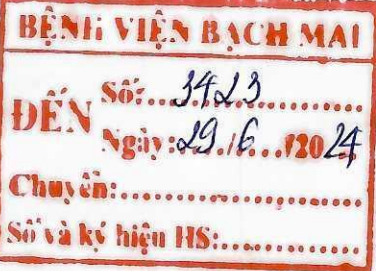 BỆNH VIỆN BẠCH MAI
ĐẾN Số:...3423...............
Ngày:29./6.../2024
Chuyển:...........................
Số và ký hiệu HS:.............